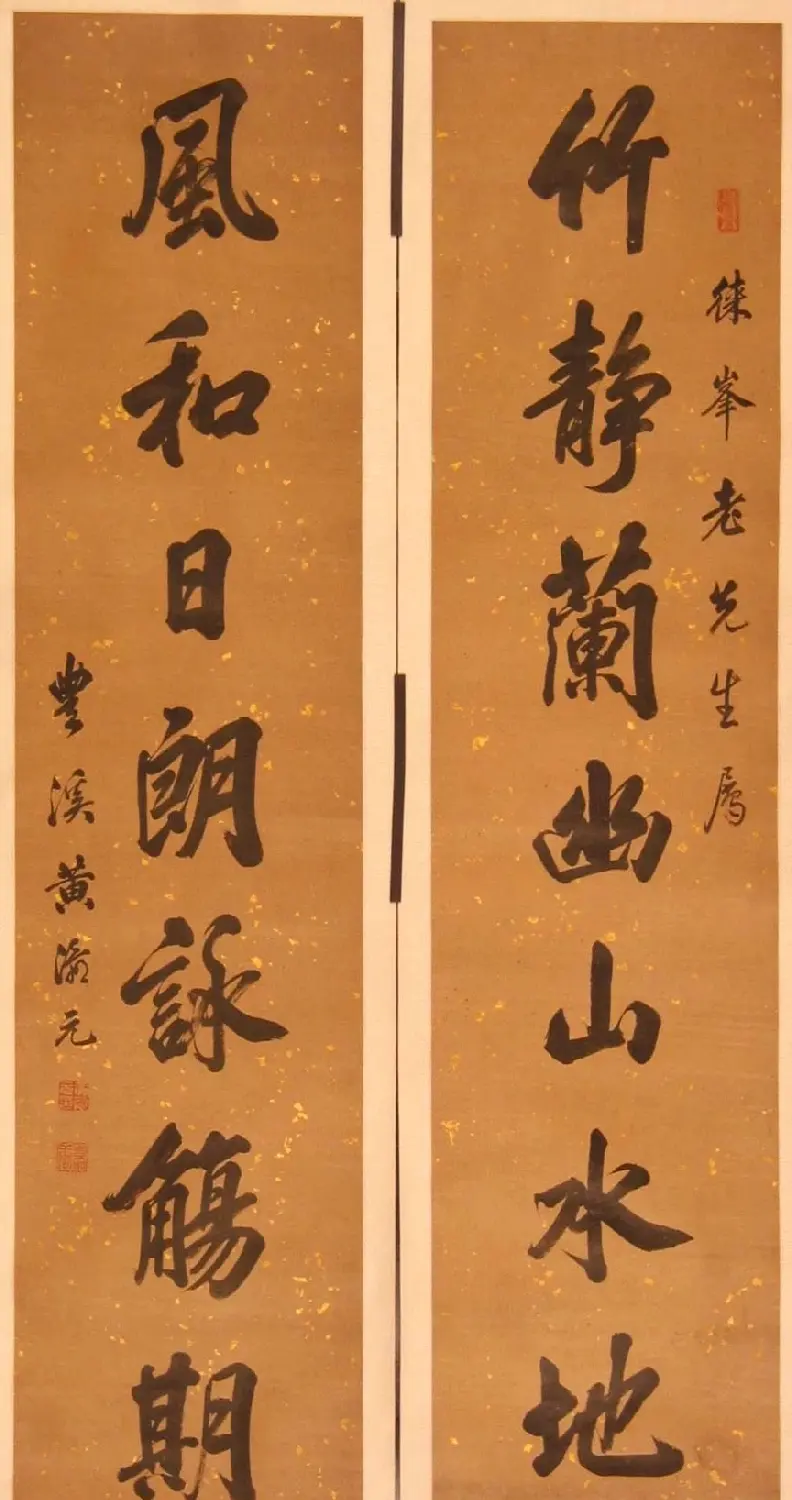 徠峯老先生屬
竹靜蘭幽山水地
風和日朗詠觴期
豐溪黃瀛元